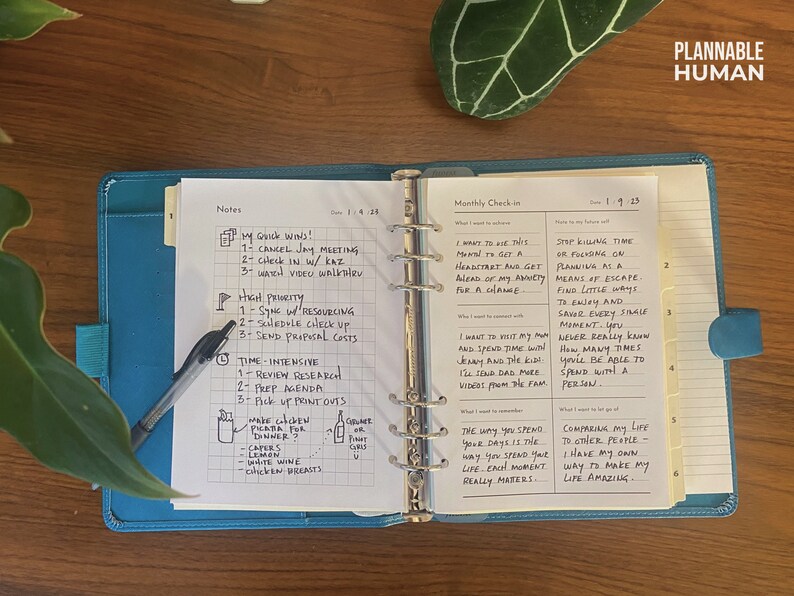 PLANNABLE
HUMAN
1
Notes
Date 1 / 9 / 23
MY QUICK WINS!
1- CANCEL JAY MEETING
2- CHECK IN W/ KAZ
3- WATCH VIDEO WALKTHRU
HIGH PRIORITY
1- SYNC W/ RESOURCING
2- SCHEDULE CHECK UP
3- SEND PROPOSAL COSTS
TIME-INTENSIVE
1- REVIEW RESEARCH
2- PREP AGENDA
3- PICK UP PRINT OUTS
MAKE CHICKEN
PICATTA FOR
DINNER?
- CAPERS
- LEMON
- WHITE WINE
- CHICKEN BREASTS
GRUNER
OR
PINOT
GRIS
Monthly Check-in
Date 1 / 9 / 23
What I want to achieve
I WANT TO USE THIS
MONTH TO GET A
HEADSTART AND GET
AHEAD OF MY ANXIETY
FOR A CHANGE.
Who I want to connect with
I WANT TO VISIT MY MOM
AND SPEND TIME WITH
JENNY AND THE KIDS.
I'LL SEND DAD MORE
VIDEOS FROM THE FAM.
What I want to remember
THE WAY YOU SPEND
YOUR DAYS IS THE
WAY YOU SPEND YOUR
LIFE. EACH MOMENT
REALLY MATTERS.
Note to my future self
STOP KILLING TIME
OR FOCUSING ON
PLANNING AS A
MEANS OF ESCAPE.
FIND LITTLE WAYS
TO ENJOY AND
SAVOR EVERY SINGLE
MOMENT. YOU
NEVER REALLY KNOW
HOW MANY TIMES
YOU'LL BE ABLE TO
SPEND WITH A
PERSON.
What I want to let go of
COMPARING MY LIFE
TO OTHER PEOPLE -
I HAVE MY OWN
WAY TO MAKE MY
LIFE AMAZING.
2
4
5
6